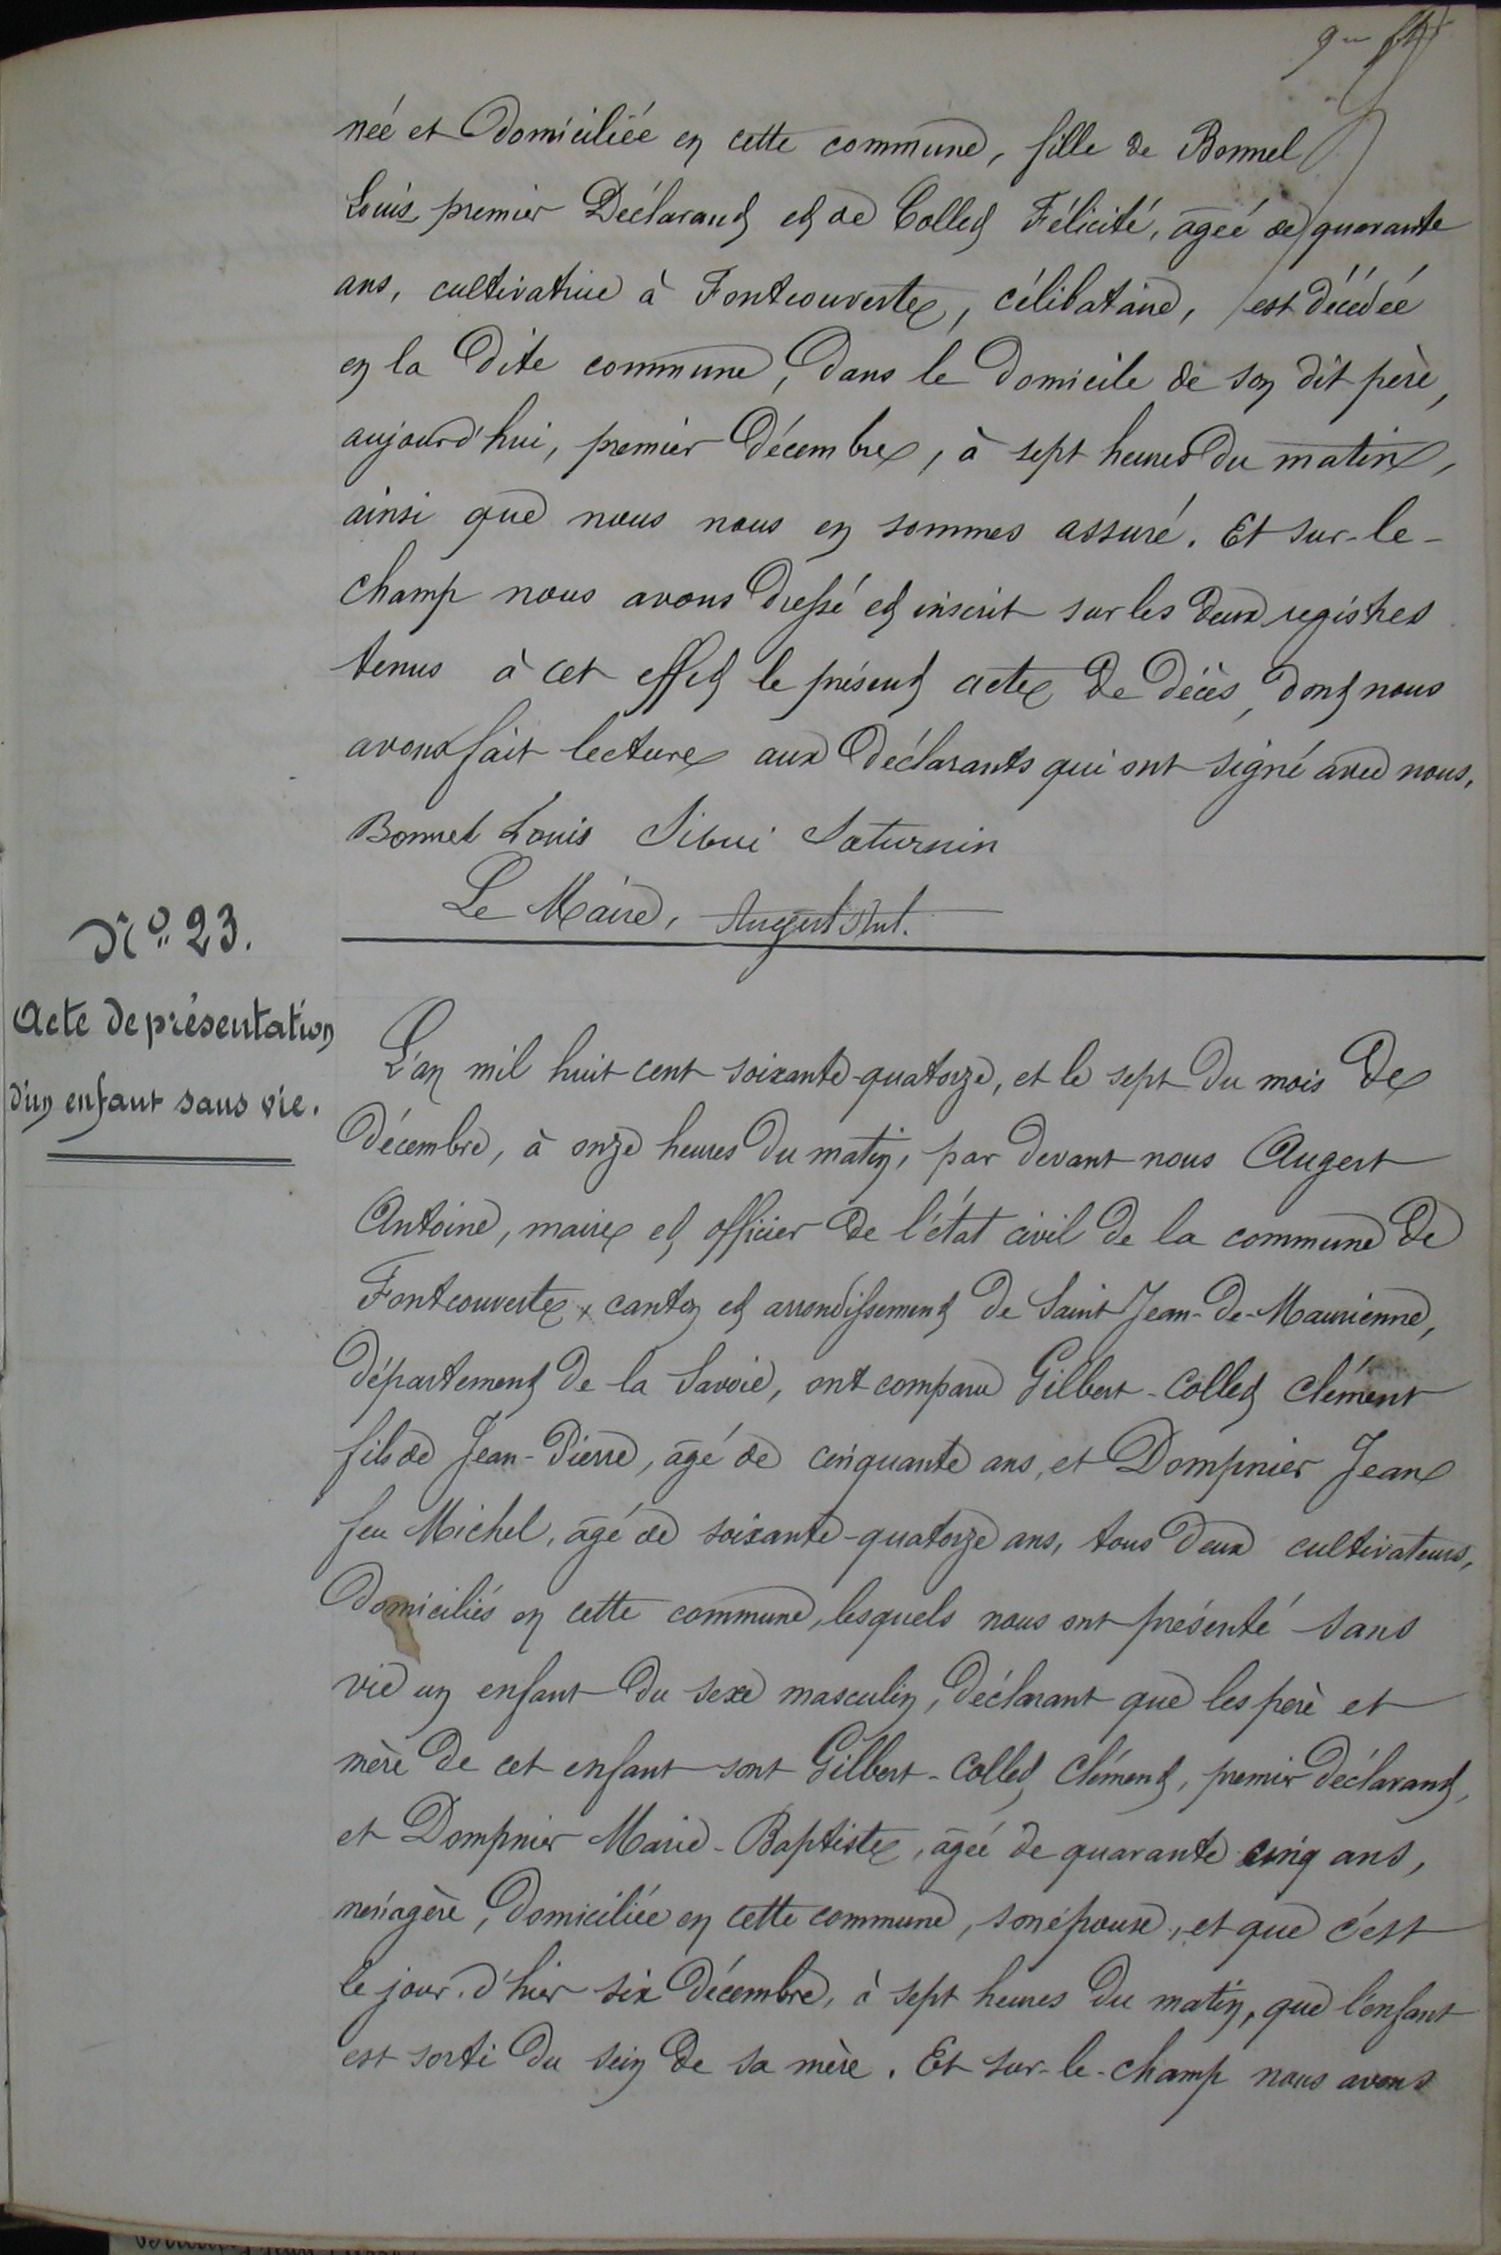 née et domiciliée en cette commune, fille de Bonnel
Louis premier Déclarant et de Collet Félicité, âgée de quarante
ans, cultivatrice à Fontcouverte, célibataire, est décédée
en la dite commune, dans le domicile de son dit père,
aujourd'hui, premier décembre, à sept heures du matin,
ainsi que nous nous en sommes assuré. Et sur-le-
champ nous avons dressé et inscrit sur les deux registres
tenus à cet effet le présent acte de décès, dont nous
avons fait lecture aux déclarants qui ont signé avec nous.
Bonnel Louis Sibué Saturnin
Le Maire, Augert Ant.
N° 23.
Acte de présentation
d'un enfant sans vie.
L'an mil huit cent soixante-quatorze, et le sept du mois de
décembre, à onze heures du matin, par devant nous Augert
Antoine, maire et officier de l'état civil de la commune de
Fontcouverte, canton et arrondissement de Saint Jean-de-Maurienne,
département de la Savoie, ont comparu Gilbert-Collet Clément
fils de Jean-Pierre, âgé de cinquante ans, et Dompnier Jean
feu Michel, âgé de soixante-quatorze ans, tous deux cultivateurs,
domiciliés en cette commune, lesquels nous ont présenté sans
vie un enfant du sexe masculin, déclarant que les père et
mère de cet enfant sont Gilbert-Collet Clément, premier déclarant,
et Dompnier Marie-Baptiste, âgée de quarante cinq ans,
ménagère, domiciliée en cette commune, son épouse, et que c'est
le jour d'hier six décembre, à sept heures du matin, que l'enfant
est sorti du sein de sa mère. Et sur-le-champ nous avons